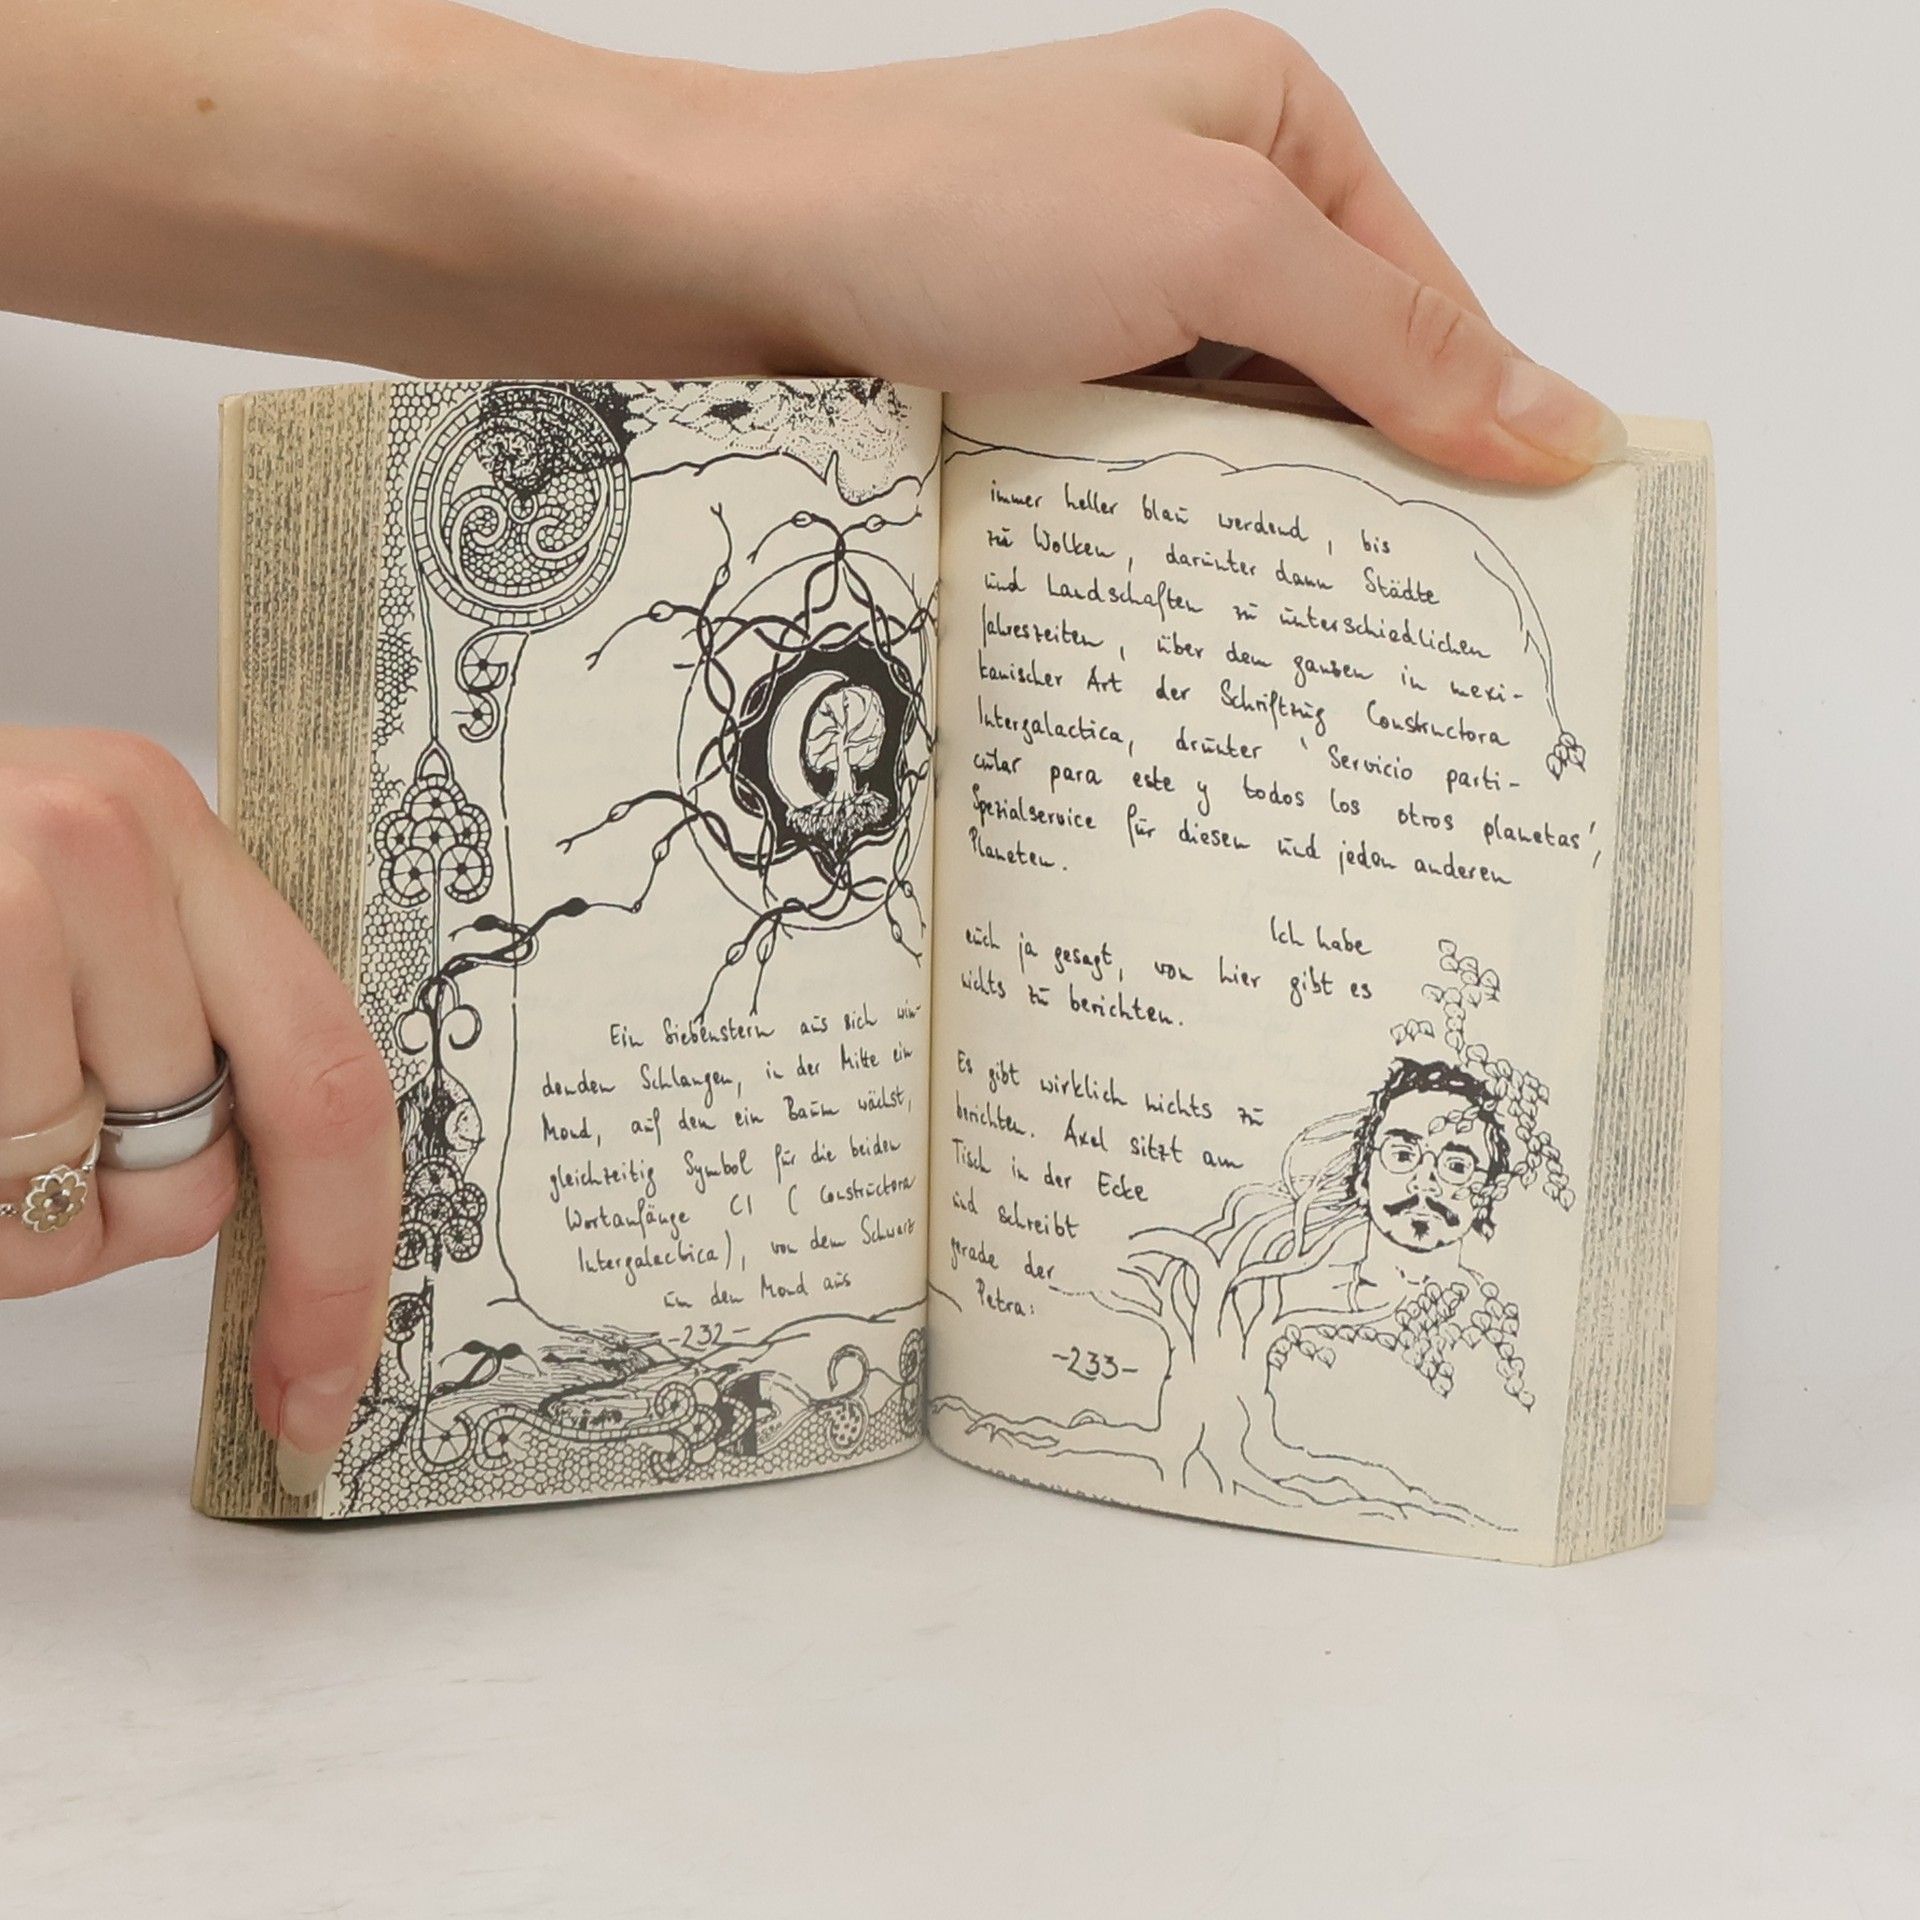 Ein Siebenstern aus sich win-
denden Schlangen, in der Mitte ein
Mond, auf dem ein Baum wächst,
gleichzeitig Symbol für die beiden
Wortanfänge CI ( Constructora
Intergalactica), von dem Schwarz
um den Mond aus
-232-
immer heller blau werdend, bis
zu Wolken, darunter dann Städte
und Landschaften zu unterschiedlichen
Jahreszeiten, über dem ganzen in mexi-
kanischer Art der Schriftzug Constructora
Intergalactica, drunter 'Servicio parti-
cular para este y todos los otros planetas',
Spezialservice für diesen und jeden anderen
Planeten.
Ich habe
euch ja gesagt, von hier gibt es
nichts zu berichten.
Es gibt wirklich nichts zu
berichten. Axel sitzt am
Tisch in der Ecke
und schreibt
gerade der
Petra:
-233-